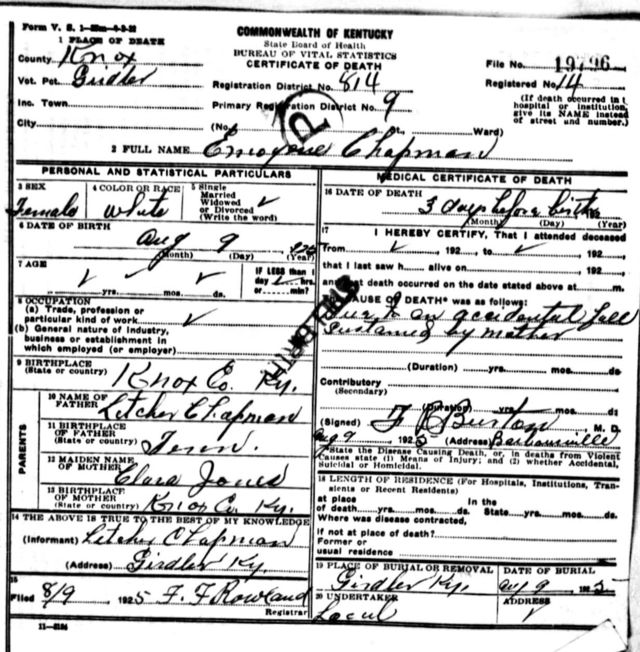 Form V. S. 1-
COMMONWEALTH OF KENTUCKY
State Board of Health
BUREAU OF VITAL STATISTICS
CERTIFICATE OF DEATH
1 PLACE OF DEATH
County Knox
Vot. Pct. Girdler
Inc. Town
City
Registration District No. 814
Primary Registration District No. 9
(No. Ward)
File No. 19796
Registered No. 14
(If death occurred in
hospital or institution,
give its NAME instead
of street and number.)
2 FULL NAME Chapman
PERSONAL AND STATISTICAL PARTICULARS
3 SEX
Female
4 COLOR OR RACE
White
5 Single
Married
Widowed
or Divorced
(Write the word)
6 DATE OF BIRTH
Aug 9
(Month) (Day) (Year)
7 AGE
yrs. mos. ds.
IF LESS than 1
day hrs.
or min?
8 OCCUPATION
(a) Trade, profession or
particular kind of work.
(b) General nature of industry,
business or establishment in
which employed (or employer)
STILLBIRTH
9 BIRTHPLACE
(State or country) Knox Co. Ky.
PARENTS
10 NAME OF
FATHER Letcher Chapman
11 BIRTHPLACE
OF FATHER
(State or country) Tenn.
12 MAIDEN NAME
OF MOTHER Clara Jones
13 BIRTHPLACE
OF MOTHER
(State or country) Knox Co. Ky.
14 THE ABOVE IS TRUE TO THE BEST OF MY KNOWLEDGE
(Informant) Letcher Chapman
(Address) Girdler Ky.
15
Filed 8/9 1925 F. F. Rowland
Registrar
MEDICAL CERTIFICATE OF DEATH
16 DATE OF DEATH
3 days before birth
(Month) (Day) (Year)
17 I HEREBY CERTIFY, That I attended deceased
from 192 to 192
that I last saw h alive on 192
and that death occurred on the date stated above at m.
CAUSE OF DEATH* was as follows:
Due to an accidental fall
sustained by mother
(Duration) yrs. mos. ds
Contributory
(Secondary)
(Duration) yrs. mos. ds
(Signed) Burton M. D.
Aug 9 1925 (Address) Barbourville
*State the Disease Causing Death, or, in deaths from Violent
Causes state (1) Means of Injury; and (2) whether Accidental,
Suicidal or Homicidal.
18 LENGTH OF RESIDENCE (For Hospitals, Institutions, Transients or Recent Residents)
at place In the
of death yrs. mos. ds. State yrs. mos. ds.
Where was disease contracted,
if not at place of death?
Former or
usual residence
19 PLACE OF BURIAL OR REMOVAL
Girdler Ky.
DATE OF BURIAL
Aug 9 1925
20 UNDERTAKER
Local
ADDRESS